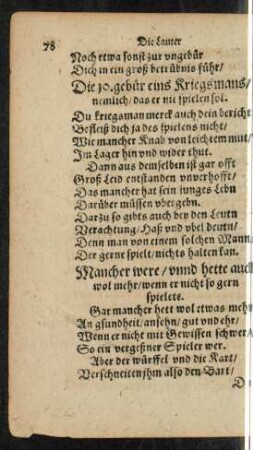 78 Die Lauter
Noch etwa sonst zur vngebür
Dich in ein groß betrübnis führ/
Die 10. gebür eins Kriegsmans/
nemlich/ das er nit spielen sol.
Du kriegsman merck auch dein bericht
Befleiß dich ja des spielens nicht/
Wie mancher Knab von leichtem mut/
Im Lager hin vnd wider thut.
Dann aus demselben ist gar offt
Groß Leid entstanden vnverhofft/
Das mancher hat sein junges Lebn
Darüber müssen vbergebn.
Darzu so gibts auch bey den Leutn
Verachtung/ Haß vnd vbel deutn/
Denn man von einem solchen Mann/
Der gerne spielt/ nichts halten kan.
Mancher were/ vnnd hette auch
wol mehr/ wenn er nicht so gern
spielets.
Gar mancher hett wol etwas mehr
An gsundheit/ ansehn/ gut vnd ehr/
Wenn er nicht mit Gewissen schwer/
So ein vergeßner Spieler wer.
Aber der würffel vnd die Kart/
Verschneiten jhm also den Bart/